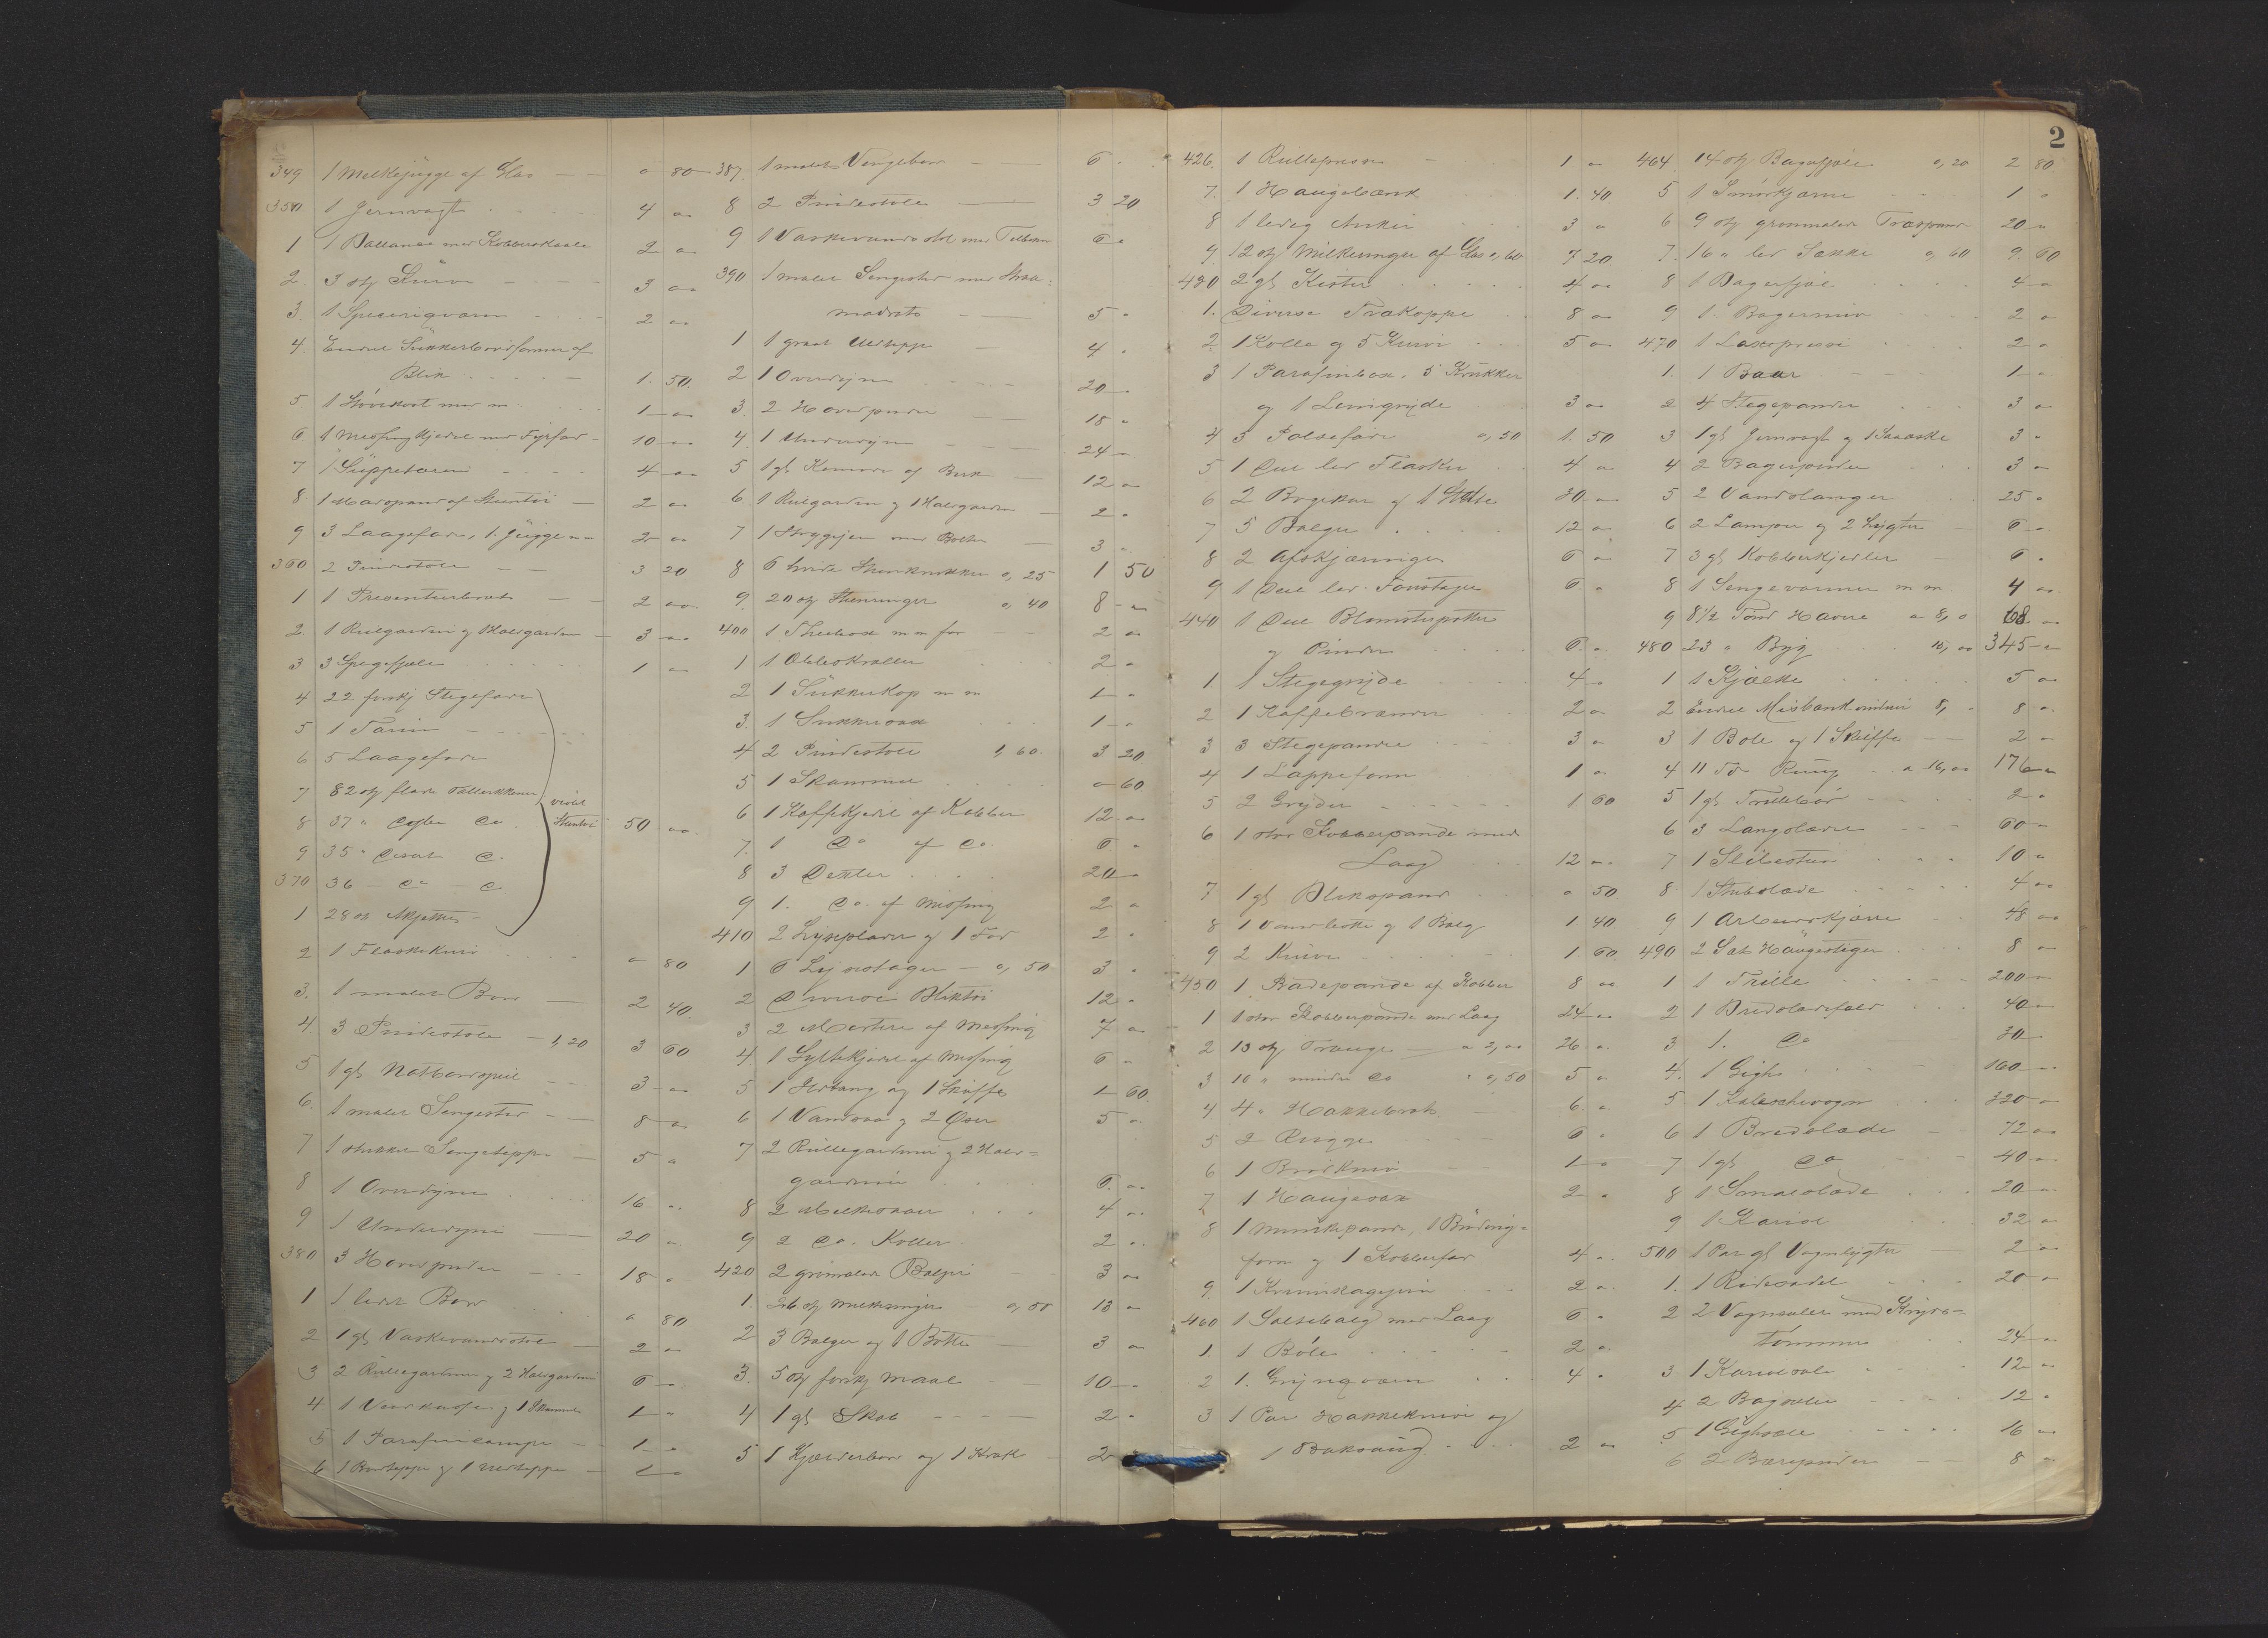 2
349 1 Melkejugge af Glas — — " 80
350 1 Jernvagt 4 "
1 1 Ballanse med Kobberskaale 2 "
2. 3 stk 3 "
3. 1 2 "
4 Endeel Sukkerbrødformer af
Blik 1. 50
5 1 m m 1 "
6 1 Messingkjedel med Fyrfad 10 "
7 1 Suppeterrin 4 "
8. 1 af Stentøi 2 "
9 3 Laagefade, 1 Jugge m m 2 "
360 2 Pindestole — — 3 20
1 1 Presenteerbret 2 "
2. 1 Rulgardin og 1 Halvgardin 3 "
3 3 Spegefjæle 1 "
4 22 forskj Stegefade
5 1 Tarin
6 5 Laagefade
7 82 stk flade Tallerkkener violet
8 37 " dybe Do Stentøi 50 "
9 35 " Desert D.
370 36 — Do — D
1 28 stk
2 1 Flaskekurv " 80
3. 1 malet Bord 2 40
4 3 Pindestole — 1,20 3 60
5 1 gl Natbordspeil 3 "
6. 1 malet Sengested — 8 "
7 1 Sengeteppe 5 "
8 1 Overdyne 16 "
9 1 Underdyne 20 "
380 3 Hovedpuder 18 "
1 1 Bord " 80
2 1 gl Vaskevandsstol 2 "
3 2 Rullegardiner og 2 Halvgardiner 6 "
4 1 og 1 Skammel 1 "
5 1 Parafinlampe 1 "
6 1 Bordteppe og 1 1 "
387. 1 malet Vengebord 6 "
8 2 Pindestole 3 20
9 1 Vaskevandsstol med Tilbehør 6 "
390 1 malet Sengested med Straa-
madrats 5 "
1 1 graat 4 "
2 1 Overdyne 20 "
3 2 Hovedpuder 18 "
4 1 Underdyne 24 "
5 1 gl Komode af Birk 12 "
6 1 Rulgardin og 1 Halvgardin 2 "
7 1 Strygejern med Bolter 3 "
8 6 hvide Stenkrukker a, 25 1 50
9 20 stk Stenringer a, 40 8 "
400 1 m m 2 "
1 1 2 "
2 1 Sukkerkop m m 1 "
3. 1 Sukkersax 1 "
4 2 Pindestole 1,60 3 20
5 1 Skammel " 60
6 1 Kaffekjedel af Kobber 12 "
7. 1 Do af Do 6 "
8 3 20 "
9 1. Do af Messing 2 "
410 2 Lyseplader og 1 Fad 2 "
1 6 Lysestager — a, 50 3 "
2 Diverse Bliktøi 12 "
3 2 Mortere af Messing 7 "
4. 1 Syltekjedel af Messing 6 "
5 1 Ildtang og 1 Skuffe 1 60
6 1 Vandsaa og 2 Øser 5 "
7 2 Rullegardiner og 2 Halv-
gardiner 6. "
8 2 Melkesaaer 4 "
9 2 Do. Koller 2 "
420 2 grønmalede Balger 3 "
1. 26 stk Melkeringer a, 50 13 "
2 3 Balger og 1 Bøtte 3 "
3. 5 stk forskj Maal 10 "
4 1 gl Skab 2 "
5 1 Kjælderbord og 1 Krak 2 "
426. 1 Rullepresse 1 "
7. 1 Haugebænk 1. 40
8 1 ledig Anker 3 "
9. 12 stk Melkeringer af Glas a, 60 7 20
430 2 gl Kister 4 "
1. Diverse Trækoppe 8 "
2 1 Kolle og 5 Kurve 5 "
3 1 Parafinbox, 5 Krukker
og 1 Leirgryde 3 "
4 3 Pølsefade a, 50 1. 50
5 1 Deel led Flasker 4 "
6 2 Bryggekar og 1 30 "
7 5 Balger 12 "
8 2 Afskjæringer 6 "
9 1 Deel led 6 "
440 1 Deel Blomsterpotter
og Pinder 6. "
1. 1 Stegegryde 4 "
2 1 Kaffebrænder 2 "
3 3 Stegepander 3 "
4 1 Lappeform 1 "
5 2 Gryder 1 60
6 1 stor Kobberpande med
Laag 12 "
7 1 gl Blikspand " 50
8 1 og 1 Balg 1 40
9 2 Kurve 1 60
450 1 Badepande af Kobber 8 "
1 1 stor Kobberpande med Laag 24 "
2 13 stk Trauge — a 2, " 26 "
3 10 " mindre Do " a, 50 5 "
4 4 " Hakkebret 6. "
5 2 6 "
6 1 Brødkniv 1 "
7 1 Haugesax 2 "
8 1 Munkepande, 1 Buding-
form og 1 Kobberfad 4 "
9. 1 Krumkagejern 2 "
460 1 Saltebalg med Laag 6 "
1. 1 Bøle 2 "
2 1. Grynqværn 4 "
3 1 Par Hakkeknive og
1 2 "
464 14 stk Bagefjæle a, 20 2 80
5 1 Smørkjærne 1 "
6 9 stk grønmalede Træspand 20 "
7. 16 " led Sække a, 60 9. 60
8 1 Bagerfjøl 4 "
9 1. 2 "
470 1 Laxepresse 2 "
1. 1 Baar 1 "
2 4 Stegepander 3 "
3 1 gl Jernvagt og 1 3 "
4 2 Bagerpinder 3 "
5 2 Vandslanger 25 "
6 2 Lamper og 2 Lygter 6 "
7 3 gl Kobberkjedler 6 "
8 1 Sengevarmer m m 4 "
9 8 1/2 Tønd Havre a 8, " 68 "
480 23 " Byg 15, " 345 "
1 1 Kjælke 5 "
2 Endeel 8, " 8 "
3 1 Bole og 1 Skuffe 2 "
4 11 Td Rug a 16, " 176 "
5 1 gl Trillebør 2 "
6 3 Langslæder 60 "
7 1 Slibesten 10 "
8. 1 Stubslæde 4 "
9 1 Arbeidskjærre 48 "
490 2 Sæt Høugestiger 8 "
1 1 Trille 200 "
2 1 40 "
3 1. Do 30 "
4. 1 Gigh 160 "
5. 1 Kaleschevogn 320 "
6 1 Bredslæde 72 "
7 1 gl Do 40 "
8 1 Smalslæde 20 "
9 1 Kariol 32 "
500 1 Par gl Vognlygter 2 "
1. 1 Ridesadel 20 "
2 2 Vognsæler med Kryds-
tømmer 24 "
3 1 Kariolsæle 12 "
4 2 Bogsæler 12 "
5 1 Gighsæle 16 "
6 2 Bærepuder 8 "